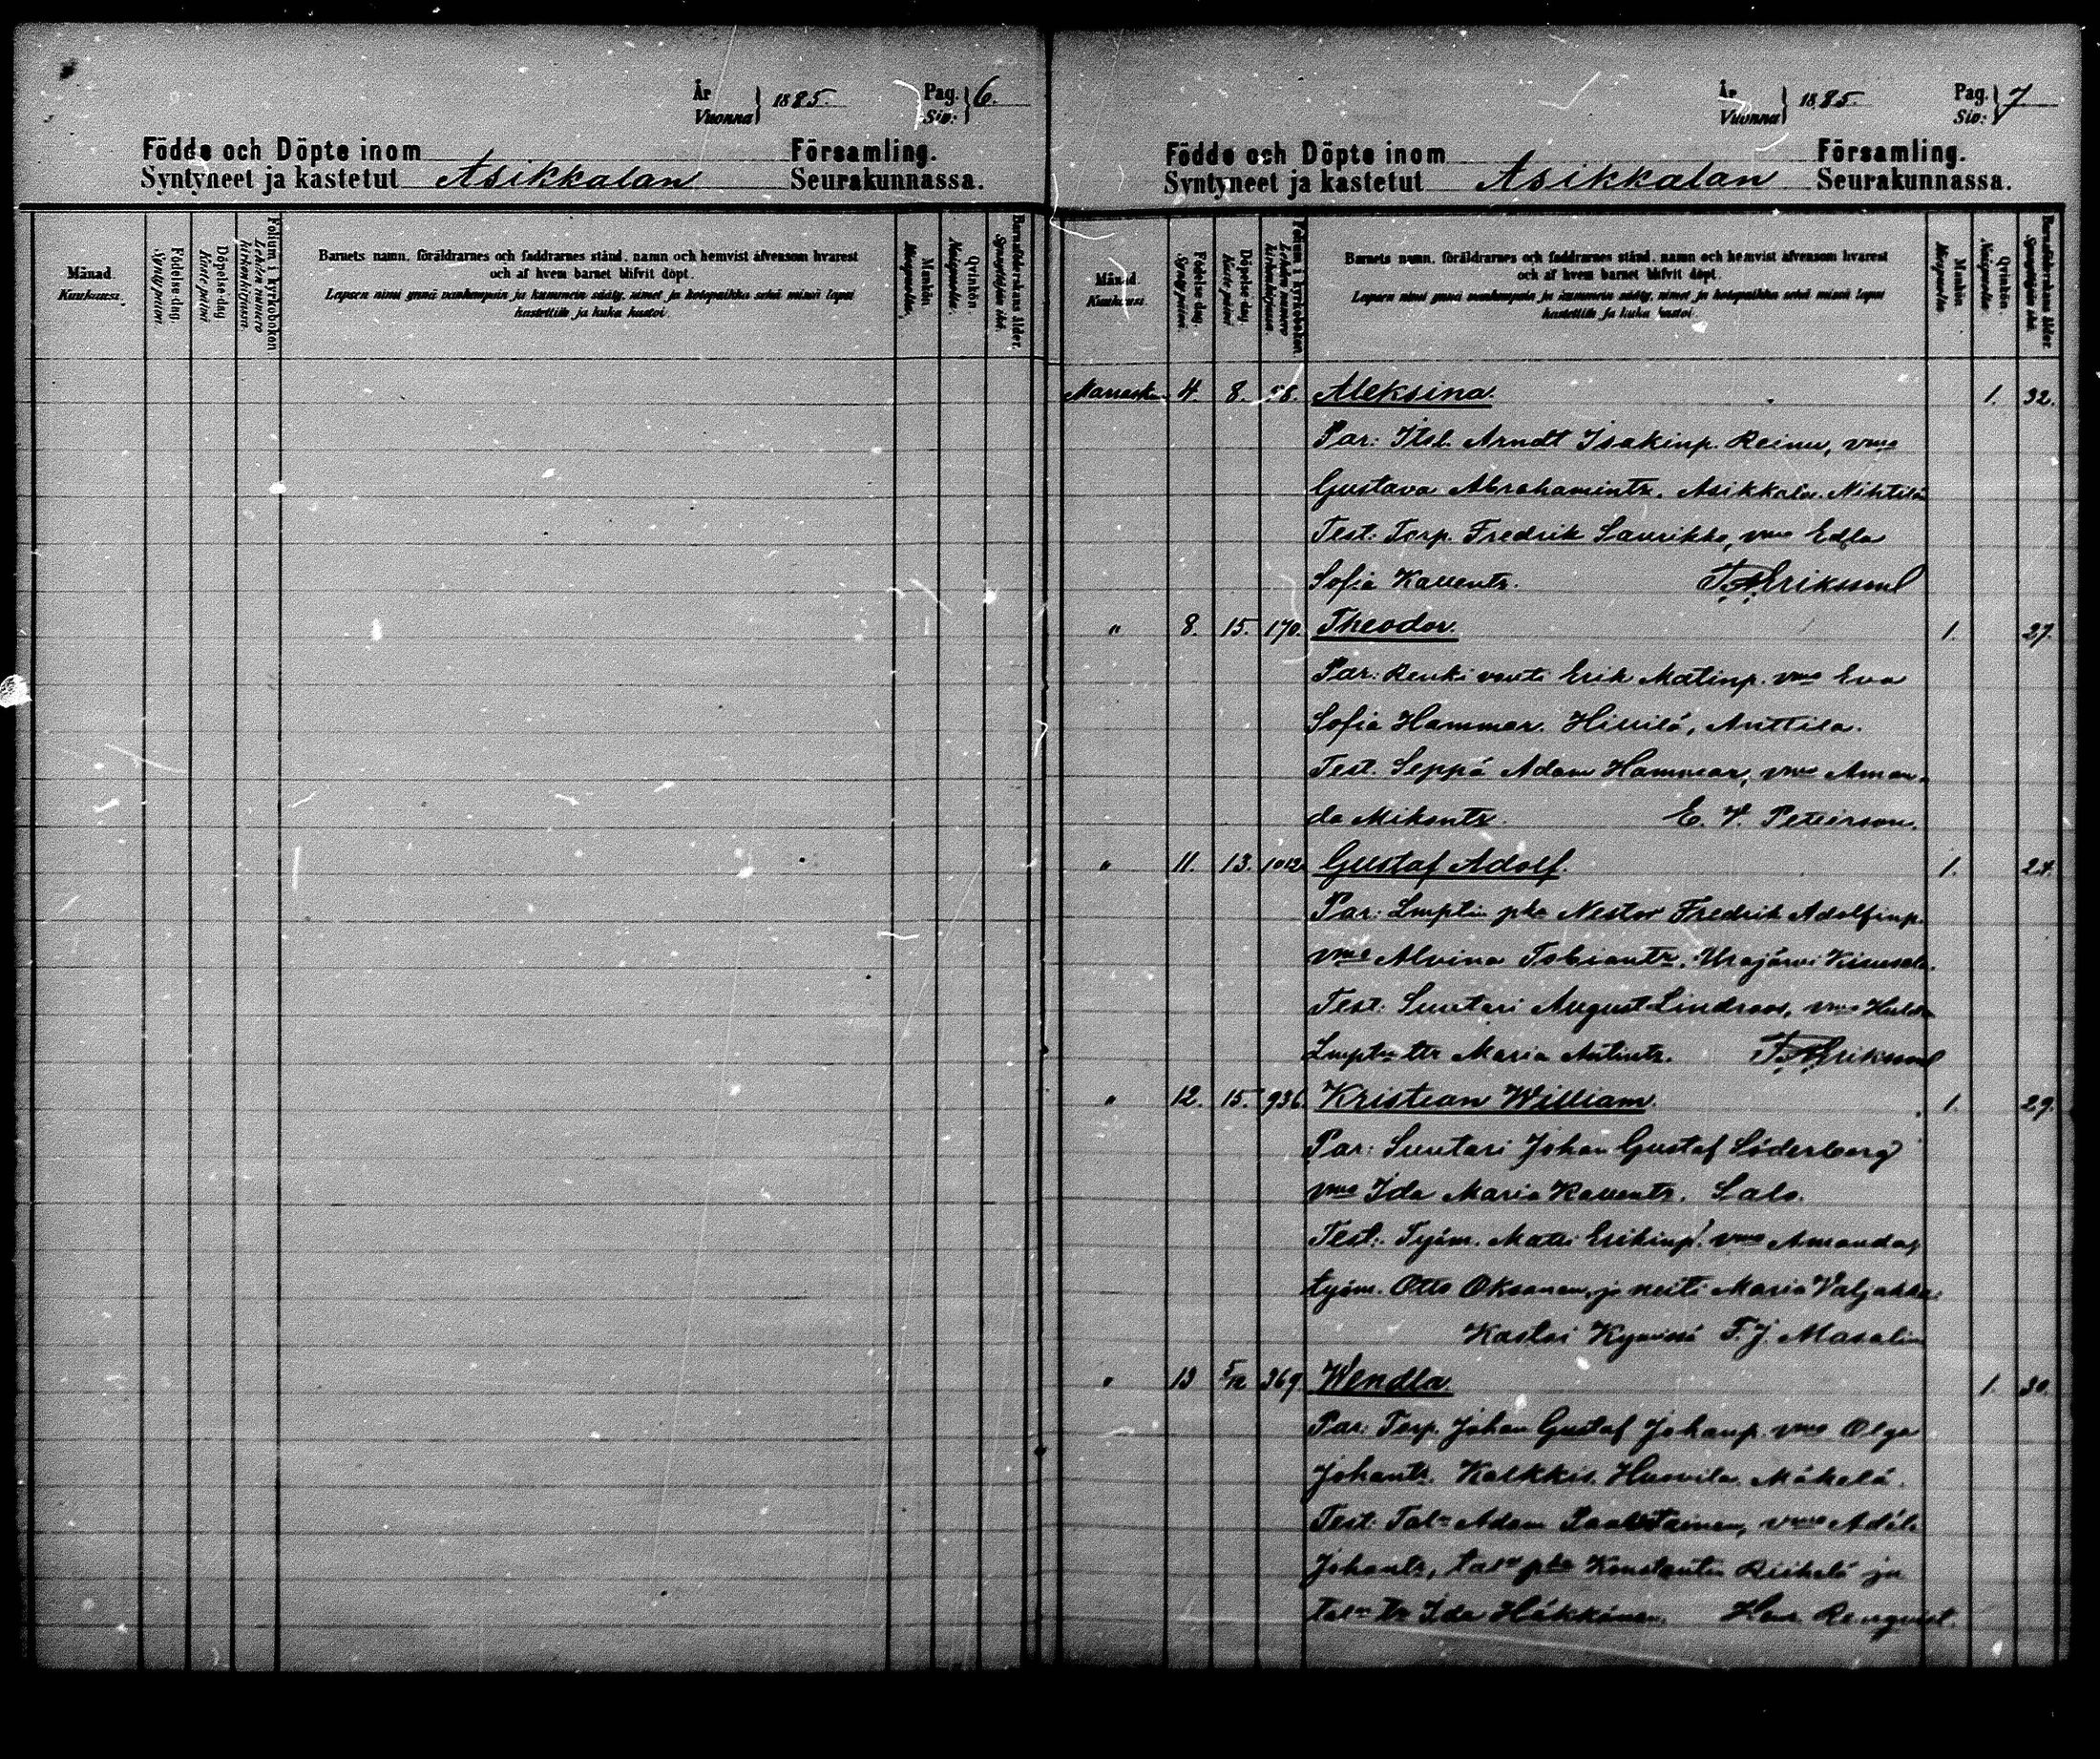 År
Vuonna } 1885. Pag.
Siv: } 6.
Födde och Döpte inom Församling.
Syntyneet ja kastetut Asikkalan Seurakunnassa.
Månad.
Kuukausi.
Födelse-dag.
Synty päivä.
Döpelse-dag.
Kaste-päivä
Folium i kyrkoboken.
Lehden numero
kirkonkirjassa.
Barnets namn, föräldrarnes och faddrarnes stånd, namn och hemvist äfvensom hvarest
och af hvem barnet blifvit döpt.
Lapsen nimi ynnä vanhempain ja kummein sääty, nimet ja kotopaikka sekä missä lapsi
kastettiin ja kuka kastoi.
Mankön.
Miespuolia.
Qvinkön.
Naispuolia.
Barnaföderskans ålder.
Synnyttäjän ikä.
År
Vuonna } 1885. Pag.
Siv: } 7
Födde och Döpte inom Församling.
Syntyneet ja kastetut Asikkalan Seurakunnassa.
Månad.
Kuukausi.
Födelse-dag.
Synty päivä.
Döpelse-dag.
Kaste-päivä
Folium i kyrkoboken.
Lehden numero
kirkonkirjassa.
Barnets namn, föräldrarnes och faddrarnes stånd, namn och hemvist äfvensom hvarest
och af hvem barnet blifvit döpt.
Lapsen nimi ynnä vanhempain ja kummein sääty, nimet ja kotopaikka sekä missä lapsi
kastettiin ja kuka kastoi.
Mankön.
Miespuolia.
Qvinkön.
Naispuolia.
Barnaföderskans ålder.
Synnyttäjän ikä.
Marrask. 4. 8. Aleksina. 1. 32.
Par: Itsl. Arndt Isakinp. Reinu, vmo
Gustava Abrahamintr. Asikkala. Nihtilä
Test: Torp. Fredrik Laurikko, vmo Edla
Sofia Kallentr. Eriksson
" 8. 15. 170. Theodor. 1. 27.
Par: Renki vouti Erik Matinp. vmo Eva
Sofia Hammar. Hillilä, Anttila.
Test. Seppä Adam Hammar, vmo Aman-
da Mikontr. E. V. Peterson.
" 11. 13. 1012. Gustaf Adolf. 1. 24.
Par: Lmptin pka Nestor Fredrik Adolfinp.
vmo Alvina Tobiantr. Urajärvi
Test: Suutari August Lindroos, vmo Hulda
Lmptn ttr Maria Antintr. Eriksson
" 12. 15. 936. Kristian William. 1. 29.
Par: Suutari Johan Gustaf Söderberg
vmo Ida Maria Kallentr. Salo.
Test: Työm. Matti Erikinp. vmo Amanda,
työm. Otto Oksanen, ja neiti Maria Valjakka.
Kastoi Kymissä F. J. Masalin
" 13 5/12 369. Wendla. 1. 30.
Par: Torp. Johan Gustaf Johanp. vmo Olga
Johantr. Kalkkis. Mäkelä.
Test: Taln Adam vmo
Johantr, taln pka Konstantin Riihelä ja
taln tr Ida Häkkänen. Renqvist.